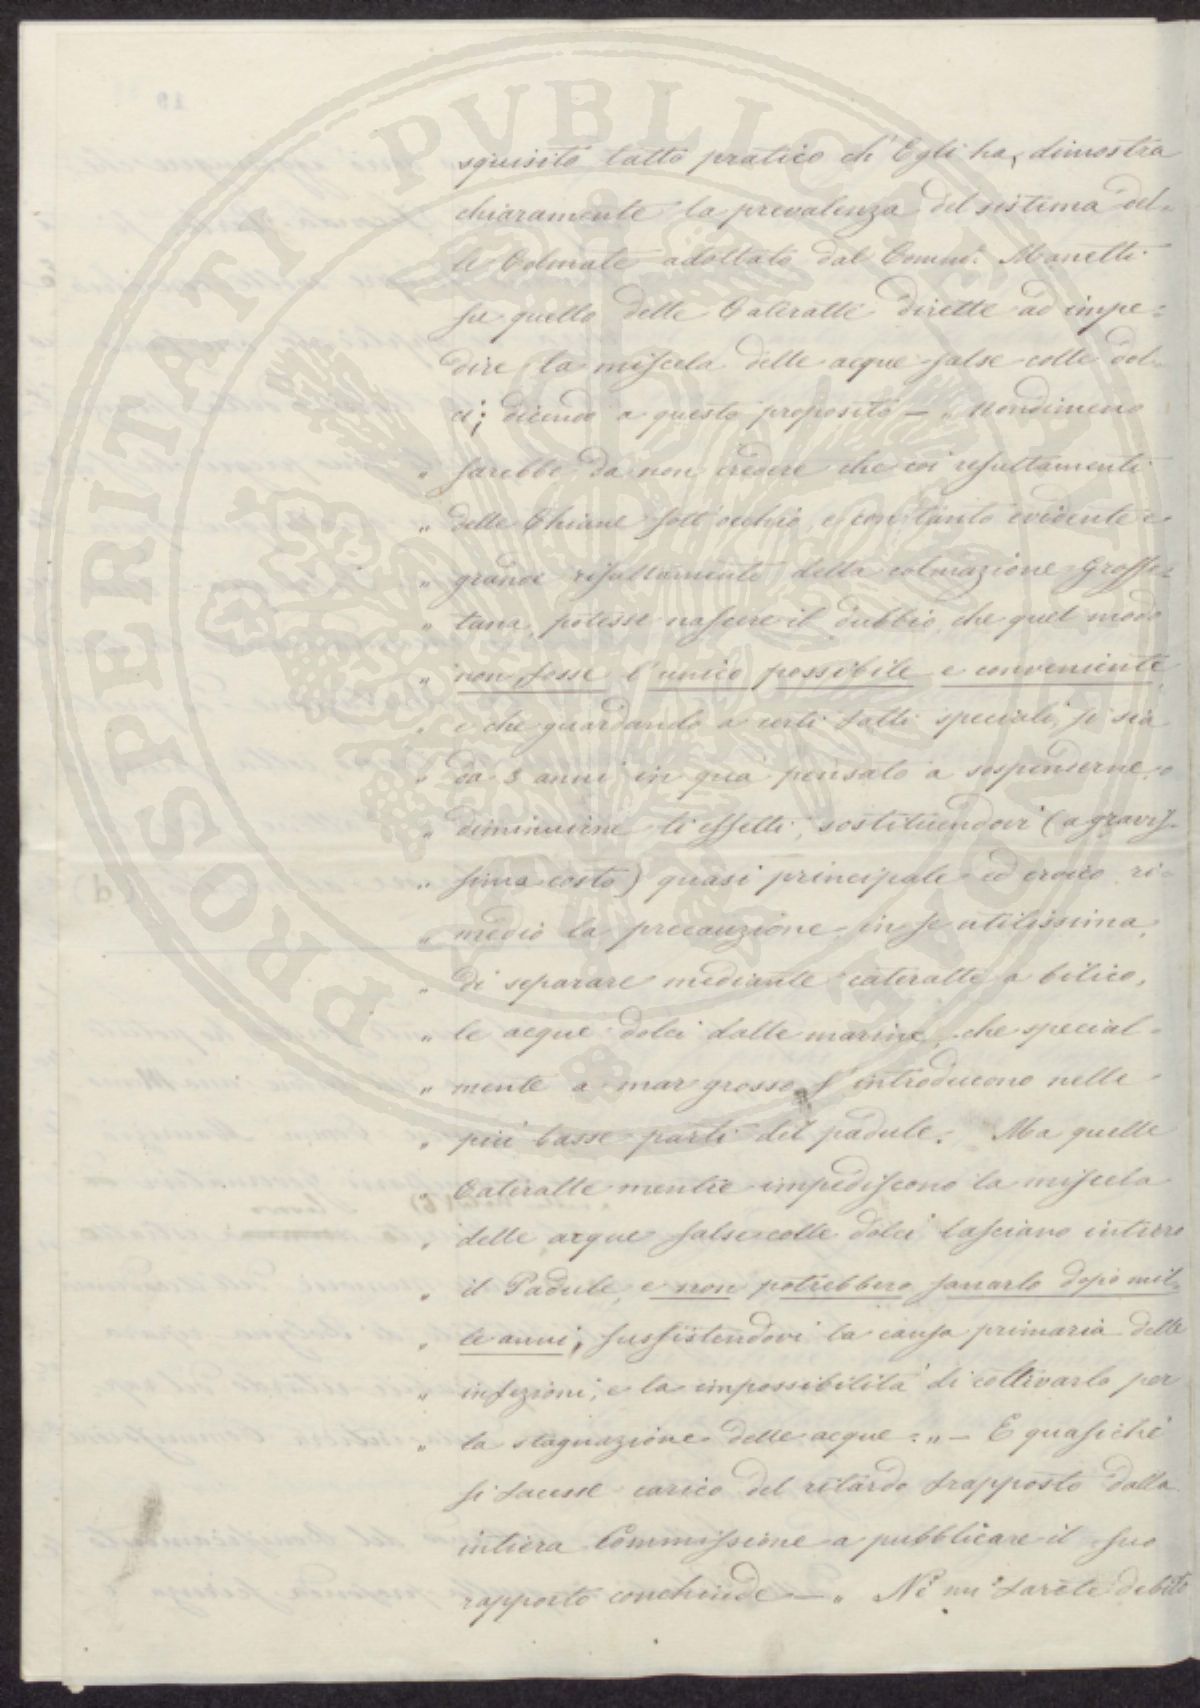 PROSPERITATI PUBLICAE AUGENDAE
squisito tatto pratico ch' Egli ha, dimostra
chiaramente la prevalenza del sistema del-
le Colmate adottato dal Comm. Manetti
su quello delle Cateratte dirette ad impe-
dire la miscela delle acque salse colle dol-
ci; dicendo a questo proposito — „ Nondimeno
„ sarebbe da non credere che coi resultamenti
„ delle Chiane sott' occhio, e con tanto evidente e
„ grande resultamento della colmazione Grosse-
„ tana, potesse nascere il dubbio, che quel modo
„ non fosse l' unico possibile e conveniente
„ e che guardando a certi fatti speciali, si sia
„ da 3 anni in qua pensato a sospenderne, o
„ diminuirne li effetti, sostituendovi (a gravis-
„ simo costo) quasi principale ed eroico ri-
„ medio la precauzione in se utilissima,
„ di separare mediante cateratte a bilico,
„ le acque dolci dalle marine, che special-
„ mente a mar grosso s' introducono nelle
„ più basse parti del padule. Ma quelle
„ Cateratte mentre impediscono la miscela
„ delle acque salse colle dolci lasciano intiero
„ il Padule, e non potrebbero sanarlo dopo mil-
„ le anni, sussistendovi la causa primaria delle
„ infezioni, e la impossibilità di coltivarlo per
„ la stagnazione delle acque. „ — E quasiché
si facesse carico del ritardo frapposto dalla
intiera Commissione a pubblicare il suo
rapporto conchiude — „ Nè mi farete debito